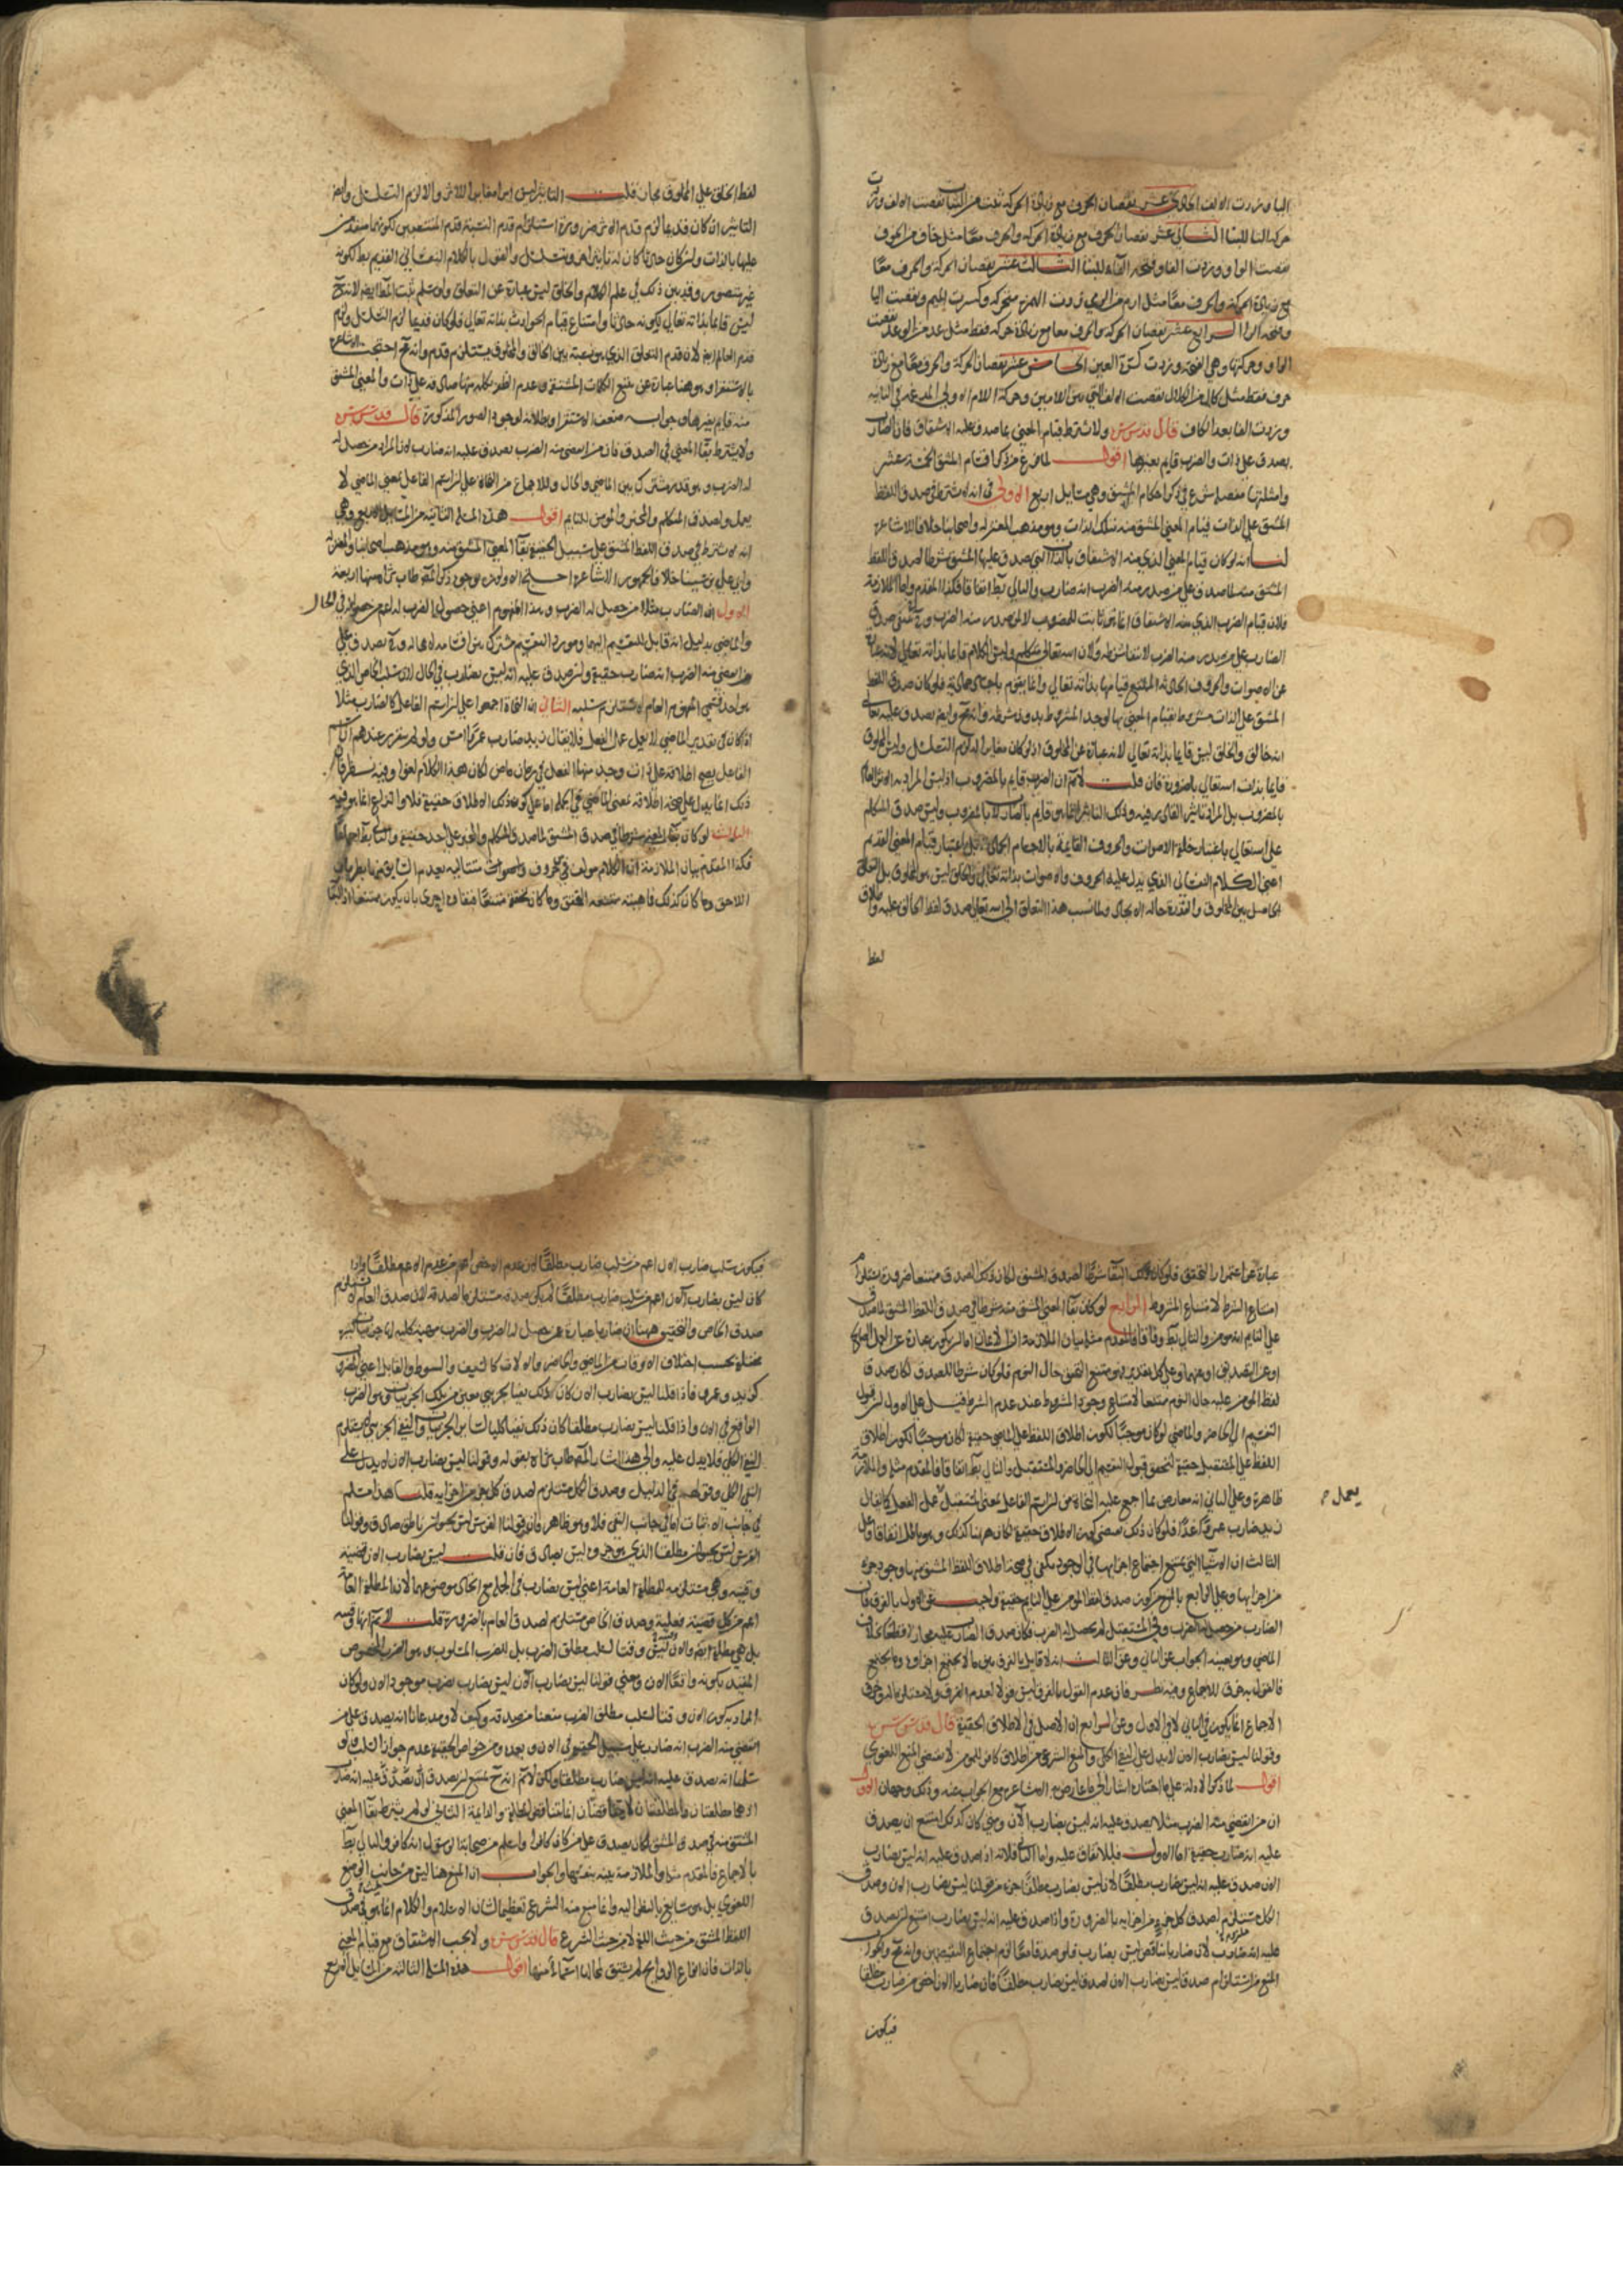 حركة التاء للبناء الثاني عشر نقصان الحرف مع زيادة الحركة والحرف معا مثل خاف من الخوف
نقصت الواو وزدت الفا وفتحة الفاء للبناء الثالث عشر نقصان الحركة والحرف معا
مع زيادة الحركة والحرف معا مثل ارم من الرمي زدت الهمزة متحركة وكسرت الميم ونقصت اليا
وفتحة الرا الرابع عشر نقصان الحركة والحرف معا مع زيادة حركة فقط مثل عد من الوعد نقصت
الواو وحركتها وهي الفتحة وزدت كسرة العين الخامس عشر نقصان الحركة والحرف معا مع زيادة
حرف فقط مثل كال من الكلال نقصت الالف التي بين اللامين وحركة اللام الاولى المدغمة في الثانية
وزدت الفا بعد الكاف قال قدس سره ولا يشترط قيام المعنى بما صدق عليه الاشتقاق فان الضارب
يصدق على ذات والضرب قايم بغيرها اقول لما فرغ من ذكر اقسام المشتق الخمسة عشر
وامثلتها مفصلة شرع في ذكر احكام المشتق وهي مسايل اربع الاولى في انه لا يشترط في صدق اللفظ
المشتق على الذات قيام المعنى المشتق منه بتلك الذات وهو مذهب المعتزلة واصحابنا خلافا للاشاعرة
لنا انه لو كان قيام المعنى الذي منه الاشتقاق بالذات التي يصدق عليها المشتق شرطا لصدق اللفظ
المشتق منه لما صدق على من صدر منه الضرب انه ضارب والتالي بط اتفاقا فكذا المقدم واما الملازمة
فلان قيام الضرب الذي منه الاشتقاق انما هو ثابت للمضروب لا لمن صدر منه الضرب
المشتق على الذات مشروطا بقيام المعنى بها لوجد المشروط بدون شرطه وانه مح وايضا يصدق عليه تعالى
انه خالق والخلق ليس قايما بذاته تعالى لانه عبارة عن المخلوق اذ لو كان مغايرا له لزم التسلسل وليس المخلوق
قايما بذات الله تعالى بالضرورة فان قلت لانم ان الضرب قايم بالمضروب اذ ليس المراد به الاثر القايم
بالمضروب بل المراد تاثير القادر فيه وذلك التاثير انما هو قايم بالضارب لا بالمضروب وليس صدق المتكلم
على الله تعالى باعتبار خلقه الاصوات والحروف القايمة بالاجسام الجمادية بل باعتبار قيام المعنى القديم
اعني الكلام النفساني الذي يدل عليه الحروف والاصوات بذاته تعالى والخلق ليس هو المخلوق بل التعلق
الحاصل بين المخلوق والقدرة حالة الايجاد ولما نسب هذا التعلق الى الله تعالى صدق لفظ الخالق عليه واطلاق
لفظ
لفظ الخلق على المخلوق مجاز قلت التاثير ليس امرا مغايرا للاثر والا لزم التسلسل وايضا
التاثير ان كان قديما لزم قدم الاثر ضرورة استلزام قدم النسبة قدم المنتسبين لكونهما متقدمين
عليها بالذات وان كان حادثا كان له تاثير اخر وتسلسل والقول بالكلام النفساني القديم بط لكونه
غير متصور وقد بين ذلك في علم الكلام والخلق ليس عبارة عن التعلق ولو سلم ثبت المط ايضا لانه ح
ليس قايما بذاته تعالى لكونه حادثا وامتناع قيام الحوادث بذاته تعالى فلو كان قديما لزم التسلسل ولزم
قدم العالم ايضا لان قدم التعلق الذي هو نسبة بين الخالق والمخلوق يستلزم قدمه وانه مح احتجت الاشاعرة
بالاستقراء وهو هنا عبارة عن تتبع الكلمات المشتقة وعدم الظفر بكلمة منها صادقة على ذات والمعنى المشتق
منه قايم بغيرها وجوابه ضعف الاستقرا وبطلانه لوجود الصور المذكورة قال قدس سره
ولا يشترط بقا المعنى في الصدق فان من انقضى منه الضرب يصدق عليه انه ضارب لان المراد من حصل له
له الضرب وهو قدر مشترك بين الماضي والحال وللاجماع من النحاة على ان اسم الفاعل بمعنى الماضي لا
يعمل ولصدق المتكلم والمخبر والمؤمن للنايم اقول هذه المسئلة الثانية من المسايل الاربع وهي
انه لا يشترط في صدق اللفظ المشتق على سبيل الحقيقة بقا المعنى المشتق منه وهو مذهب اصحابنا والمعتزلة
وابي علي بن سينا خلافا لجمهور الاشاعرة احتج الاولون بوجوه ذكر المص طاب ثراه منها اربعة
الاول ان الضارب مثلا من حصل له الضرب وهذا المفهوم اعني حصول الضرب له اعم من حصوله في الحال
والماضي بدليل انه قابل للتقسيم اليهما ومورد التقسيم مشترك بين اقسامه لا محالة وح يصدق على
من انقضى منه الضرب انه ضارب حقيقة وان صدق عليه انه ليس بضارب في الحال لان سلب الخاص الذي
هو احد قسمي المفهوم العام لا يستلزم سلبه الثاني ان النحاة اجمعوا على ان اسم الفاعل كالضارب مثلا
اذا كان في تقدير الماضي لا يعمل عمل الفعل فلا يقال زيد ضارب عمرا امس ولو لم يتقرر عندهم ان اسم
الفاعل يصح اطلاقه على ذات وجد منها الفعل في زمان ماض لكان هذا الكلام لغوا وفيه نظر فان
ذلك انما يدل على صحة اطلاقه بمعنى الماضي في الجملة اما على كون ذلك الاطلاق حقيقة فلا والنزاع انما هو فيه
الثالث لو كان بقا المعنى شرطا في صدق المشتق لما صدق المتكلم والمخبر على احد حقيقة والتالي بط اجماعا
فكذا المقدم بيان الملازمة ان الكلام مولف من حروف واصوات متتالية يعدم السابق منها بطريان
اللاحق وما كان كذلك فماهيته ممتنعة التحقق وما كان تحققه ممتنعا فبقاوه احرى بان يكون ممتنعا اذ البقا
عبارة عن استمرار التحقق فلو كان ذلك البقا شرطا لصدق المشتق لكان ذلك الصدق ممتنعا ضرورة استلزام
امتناع الشرط لامتناع المشروط الرابع لو كان بقا المعنى المشتق منه شرطا في صدق اللفظ المشتق لما صدق
على النايم انه مومن والتالي بط وفاقا فالمقدم مثله بيان الملازمة ان الايمان اما ان يكون عبارة عن العمل الصالح
او عن التصديق او عنهما وعلى كل تقدير فهو ممتنع التحقق حال النوم فلو كان شرطا للصدق لكان صدق
لفظ المومن عليه حال النوم ممتنعا لامتناع وجود المشروط عند عدم الشرط قيل على الاول ان قبول
التقسيم الى الحاضر والماضي لو كان موجبا لكون اطلاق اللفظ على الماضي حقيقة لكان موجبا لكون اطلاق
اللفظ على المستقبل حقيقة لتحقق قبول التقسيم الى الحاضر والمستقبل والتالي بط اتفاقا فالمقدم مثله والملازمة
ظاهرة وعلى الثاني انه معارض بما اجمع عليه النحاة من ان اسم الفاعل بمعنى المستقبل عمل الفعل كما يقال
يعمل
زيد ضارب عمرا غدا فلو كان ذلك مقتضى كون الاطلاق حقيقة لكان هنا كذلك وهو باطل اتفاقا وعلى
الثالث ان الاشيا التي يمتنع اجتماع اجزائها في الوجود يكفي في صحة اطلاق اللفظ المشتق منها وجود جزء
من اجزايها وعلى الرابع بالمنع من كون صدق لفظ المومن على النايم حقيقة واجيب عن الاول بالفرق فان
الضارب من حصل له الضرب وفي المستقبل لم يحصل له الضرب فكان صدق الضارب عليه مجازا قطعا بخلاف
الماضي وهو بعينه الجواب عن الثاني وعن الثالث انه لا قايل بالفرق بين ما لا يجتمع اجزاوه وما يجتمع
فالقول به خرق للاجماع وفيه نظر فان عدم القول بالفرق ليس قولا لعدم الفرق ولا مستلزما له وخرق
الاجماع انما يكون في الثاني لا في الاول وعن الرابع ان الاصل في الاطلاق الحقيقة قال قدس سره
وقولنا ليس بضارب الان لا يدل على نفي الكلي والمنع الشرعي من اطلاق كافر للمومن لا يقتضي المنع اللغوي
اقول لما ذكر الادلة على ما اختاره اشار الى ما عارض به الاشاعرة مع الجواب عنه وذلك وجهان الاول
ان من انقضى منه الضرب مثلا يصدق عليه انه ليس بضارب الآن ومتى كان كذلك امتنع ان يصدق
عليه انه ضارب حقيقة اما الاول فللاتفاق عليه واما الثاني فلانه اذا صدق عليه انه ليس بضارب
الان صدق عليه انه ليس بضارب مطلقا لان ليس بضارب مطلقا جزء من قولنا ليس بضارب الان وصدق
الكل مستلزم لصدق كل جزء من اجزايه بالضرورة واذا صدق عليه انه ليس بضارب امتنع ان يصدق
عليه انه ضارب لان ضاربا يناقض ليس بضارب فلو صدقا معا لزم اجتماع النقيضين وانه مح والجواب
المنع من استلزام صدق ليس بضارب الان لصدق ليس بضارب مطلقا فان ضاربا الان اخص من ضارب مطلقا
فيكون
فيكون سلب ضارب الان اعم من سلب ضارب مطلقا لان عدم الاخص اعم من عدم الاعم مطلقا واذا
كان ليس بضارب الان اعم من سلب ضارب مطلقا لم يكن صدقه مستلزما لصدقه لان صدق العام لا يستلزم
صدق الخاص والتحقيق ههنا ان ضاربا عبارة عمن حصل له الضرب والضرب مهية كلية لها جزئيات كثيرة
مختلفة بحسب اختلاف الاوقات من الماضي والحاضر والالات كالسيف والسوط والقابل اعني المضروب
كزيد وعمرو فاذا قلنا ليس بضارب الان كان ذلك نفيا لجزئي معين من تلك الجزئيات وهو الضرب
الواقع في الان واذا قلنا ليس بضارب مطلقا كان ذلك نفيا كليا لساير الجزئيات والنفي الجزئي لا يستلزم
النفي الكلي فلا يدل عليه والى هذا اشار المص طاب ثراه بقوله وقولنا ليس بضارب الان لا يدل على
النفي الكلي وقولهم في الدليل وصدق الكل مستلزم لصدق كل جزء من اجزايه قلنا هذا مسلم
في جانب الاثبات اما في جانب النفي فلا وهو ظاهر فان قولنا الفرس ليس بحيوان ناطق صادق وقولنا
الفرس ليس بحيوان مطلقا الذي هو جزوه ليس بصادق فان قلت ليس بضارب الان قضية
وقتية وهي مستلزمة للمطلقة العامة اعني ليس بضارب في الجملة مع اتحاد موضوعهما لان المطلقة العامة
اعم من كل قضية فعلية وصدق الخاص مستلزم لصدق العام بالضرورة قلت لانم انها وقتية
بل هي مطلقة ايضا والان ليس وقتا لسلب مطلق الضرب بل للضرب المسلوب وهو الضرب المخصوص
المقيد بكونه واقعا الان ومعنى قولنا ليس بضارب الآن ليس بضارب بضرب موجود الان ولو كان
المراد بكون الان وقتا لسلب مطلق الضرب منعنا من صدقه وكيف لا ومدعانا انه يصدق على من
انقضى منه الضرب انه ضارب على سبيل الحقيقة في الان وبعده ومن خواص الحقيقة عدم جواز السلب ولو
سلمنا انه يصدق عليه انه ليس بضارب مطلقا ولكن لانم انه ح يمتنع ان يصدق عليه انه ضارب
اذ هما مطلقتان والمطلقتان لا تتناقضان انما تتناقض المطلقة والدايمة الثاني لو لم يشترط بقا المعنى
المشتق منه في صدق المشتق لكان يصدق على من كان كافرا واسلم من صحابة الرسول انه كافر والتالي بط
بالاجماع فالمقدم مثله والملازمة بينة بنفسها والجواب ان المنع هنا ليس من جانب الوضع
اللغوي بل هو سايغ بالنظر اليه وانما منع منه الشرع تعظيما لشان الاسلام والكلام انما هو في صدق
اللفظ المشتق من حيث اللغة لا من حيث الشرع قال قدس سره ولا يجب الاشتقاق مع قيام المعنى
بالذات فان انواع الروايح لم يشتق لمحالها اسماء منها اقول هذه المسئلة الثالثة من المسايل الاربع